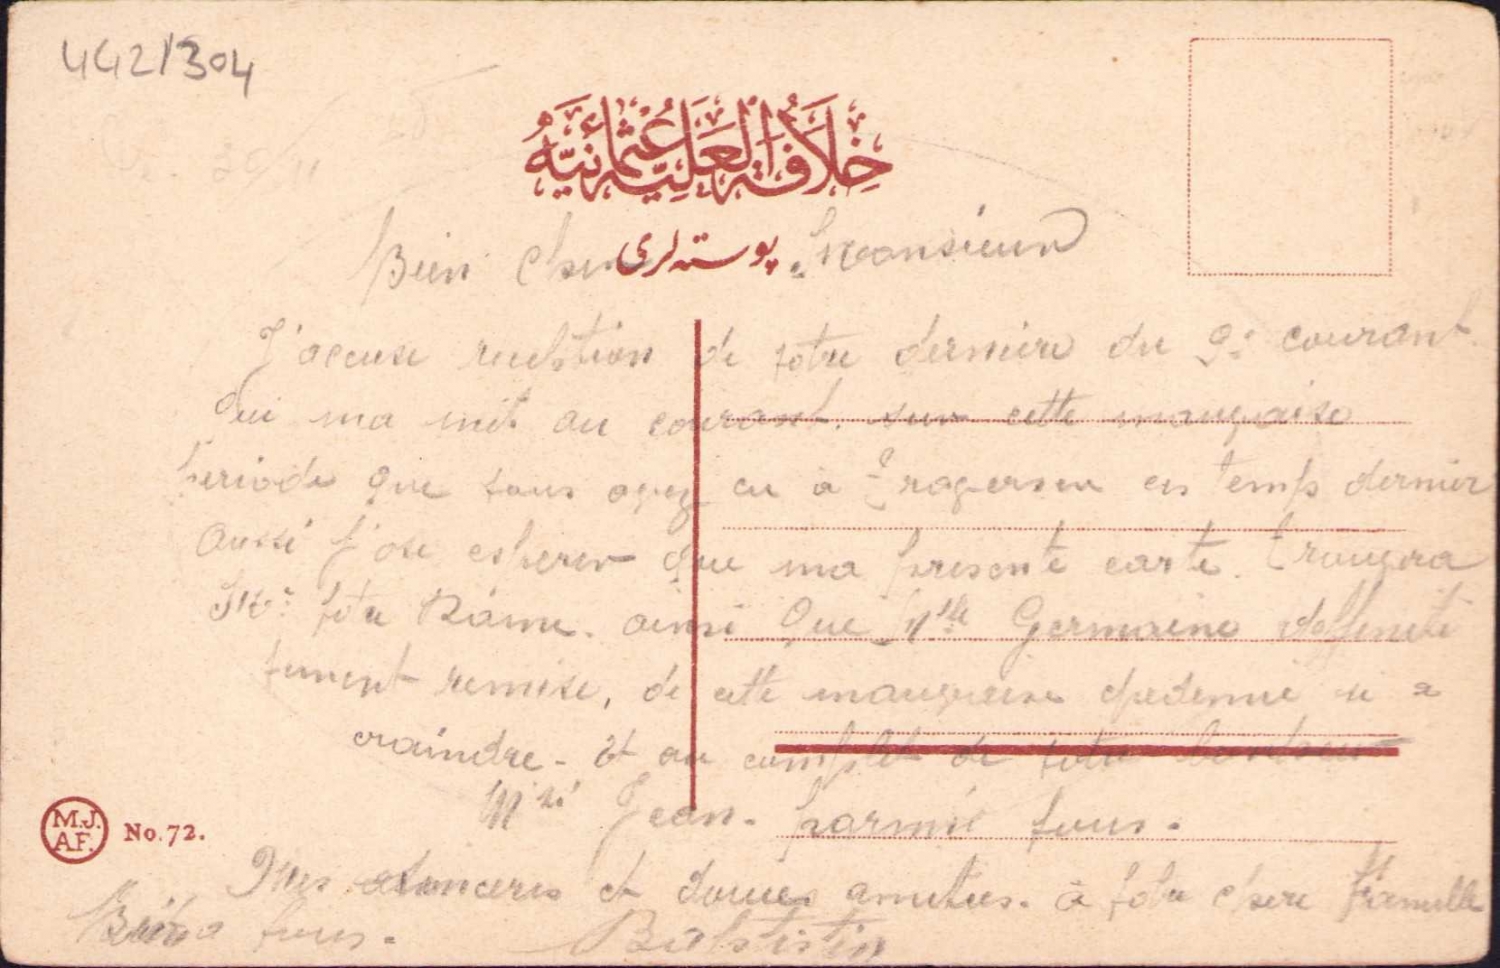 442/304
خلافة العلية عثمانية
پوسته لری
Bien cher Monsieur
J'accuse reception de votre derniere du 9: courant.
Qui ma mit au courant. sur cette mauvaise
periode que vous avez eu à traverser ces temps dernier
Aussi J'ose esperer que ma presente carte. trouvera
votre Dame. ainsi Que Mlle Germaine deffiniti
vement remise, de cette mauvaise epedemie si a
craindre - Et au complet de votre bonheur
Jean. parmie vous.
M.J.
A.F.
No. 72.
Mes sinceres et douces amities. à votre chere Famille
à vous.